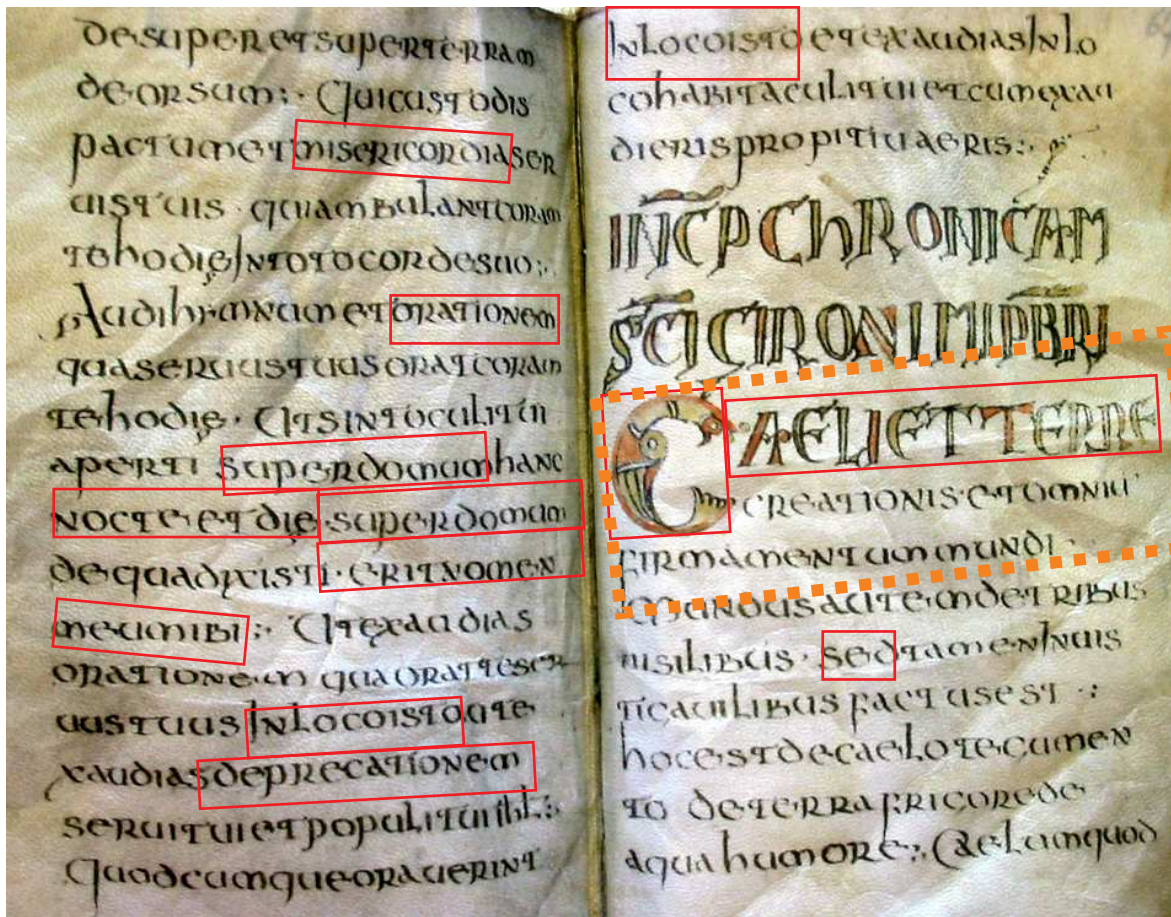 desuper et super terram
deorsum:· Qui custodis
pactum et misericordia ser
uis tuis · qui ambulant coram
te hodie In toto corde suo:,
Audi hymnum et orationem
qua seruus tuus orat coram
te hodie · Ut sint oculi tui
aperti super domum hanc
nocte et die · super domum
de qua dixisti · erit nomen
meum ibi:· Ut exaudias
orationem qua orat te ser
uus tuus In loco isto ut e
xaudias deprecationem
serui tui et populi tui ihl:·
Quodcumque orauerint
In loco isto et exaudias In lo
co habitaculi tui et cum exau
dieris propitiu aeris:·
INCP CHRONICAM
SCI CIRONIMI PBRI
CAELI ET TERRE
creationis · et omniu
firmamentum mundi ·
Mundus autem de tribus
uisilibus · sed tamen Inuis
ticauilibus factus est ·:
hoc est de caelo tecumen
to de terra fricorede
aqua humore:· Caelum quod